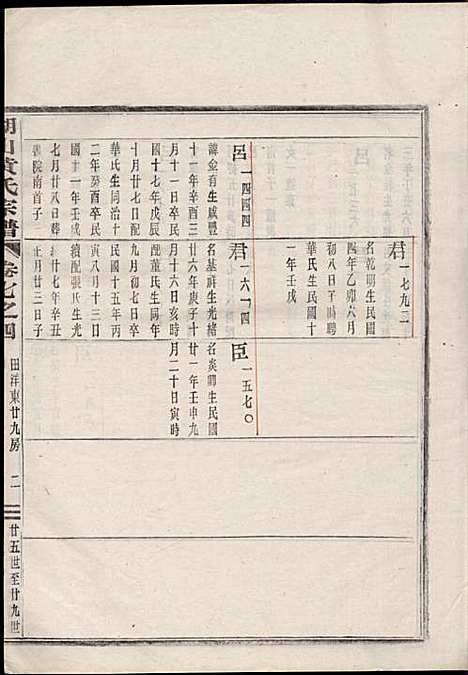 呂一四四四
諱金有生咸豐
十一年辛酉三
月十一日卒民
國十七年戊辰
十月廿七日配
華氏生同治十
二年癸酉卒民
國十一年壬戌
七月廿八日葬
書院南首子二
君一七九三
名乾明生民國
四年乙卯六月
初八日子時聘
華氏生民國十
一年壬戌
君一六一四
名基科生光緒
廿六年庚子十
月十六日亥時
配董氏生同年
九月初七日卒
民國十五年丙
寅八月十三日
續配張氏生光
緒廿七年辛丑
正月廿三日子
臣一五七〇
名炎卿生民國
廿一年壬申九
月二十日寅時
山黃氏宗譜
卷七之四
田洋東廿九房
二
廿五世至廿九世